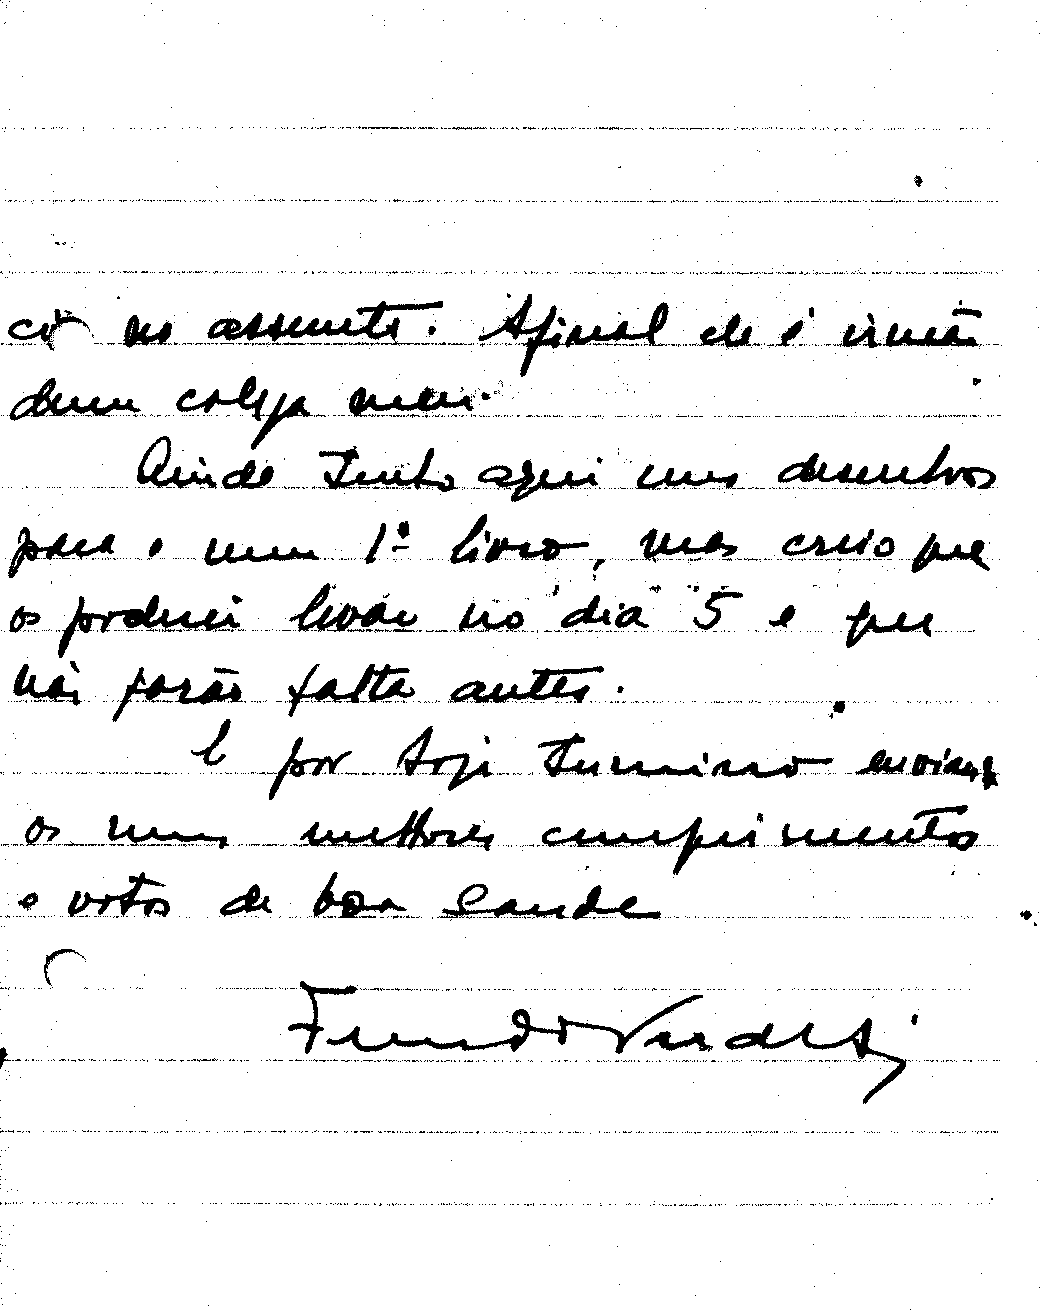 no assunto. Afinal ele é irmão
dum colega meu.
Ainda tenho aqui uns desenhos
para o meu 1º livro, mas creio que
os poderei levar no dia 5 e que
não farão falta antes.
E por hoje termino enviando
os meus melhores cumprimentos
e votos de boa saude